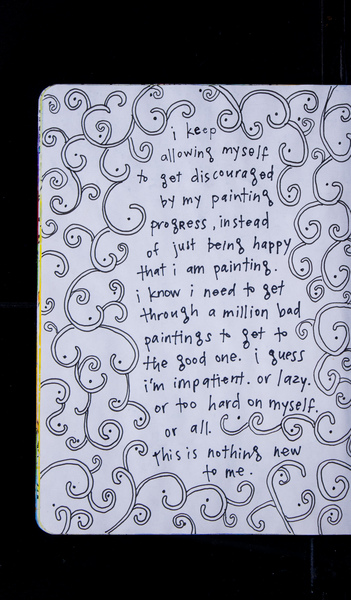 i keep
allowing myself
to get discouraged
by my painting
progress, instead
of just being happy
that i am painting.
i know i need to get
through a million bad
paintings to get to
the good one. i guess
i'm impatient. or lazy.
or too hard on myself.
or all.
this is nothing new
to me.